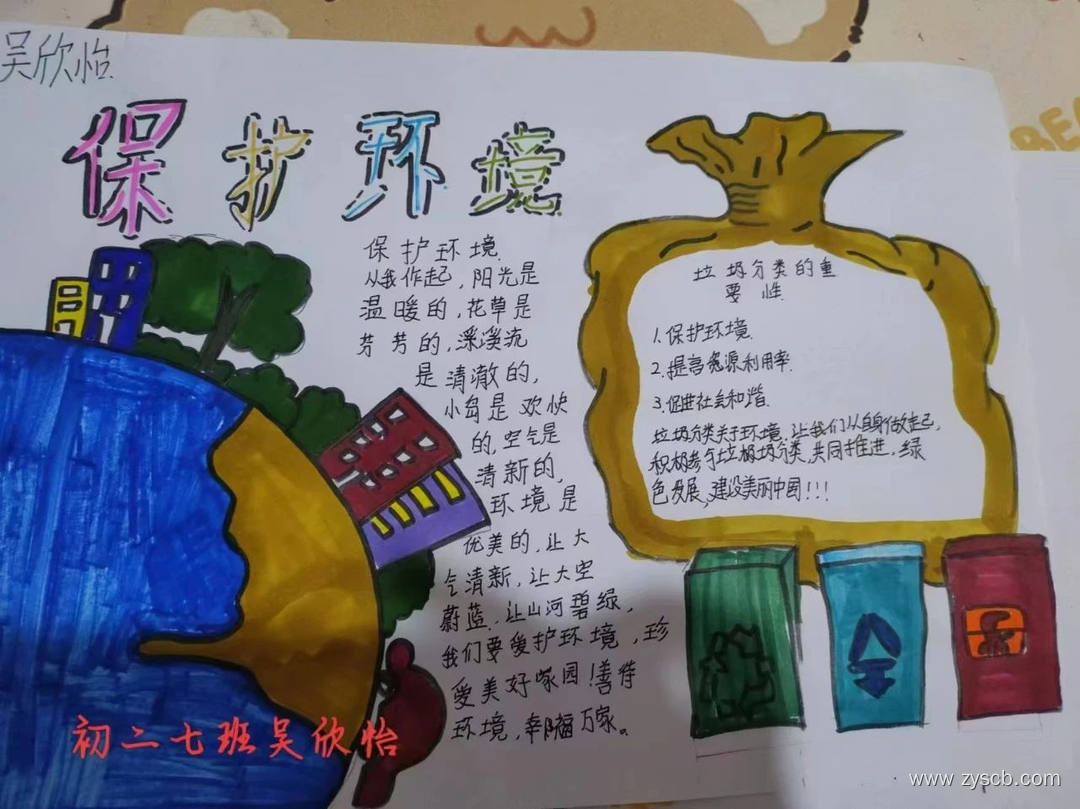 吴欣怡
保护环境
保护环境
从我作起，阳光是
温暖的，花草是
芳芳的，溪流
是清澈的，
小鸟是欢快
的，空气是
清新的，
环境是
优美的，让大
气清新，让大空
蔚蓝，让山河碧绿，
我们要爱护环境，珍
爱美好家园！善待
环境，幸福万家。
垃圾分类的重
要性
1.保护环境
2.提高资源利用率
3.促进社会和谐
垃圾分类关于环境，让我们从自身做起，
积极参与垃圾分类，共同推进，绿
色发展，建设美丽中国！！！
初二七班吴欣怡
www.zyscb.com